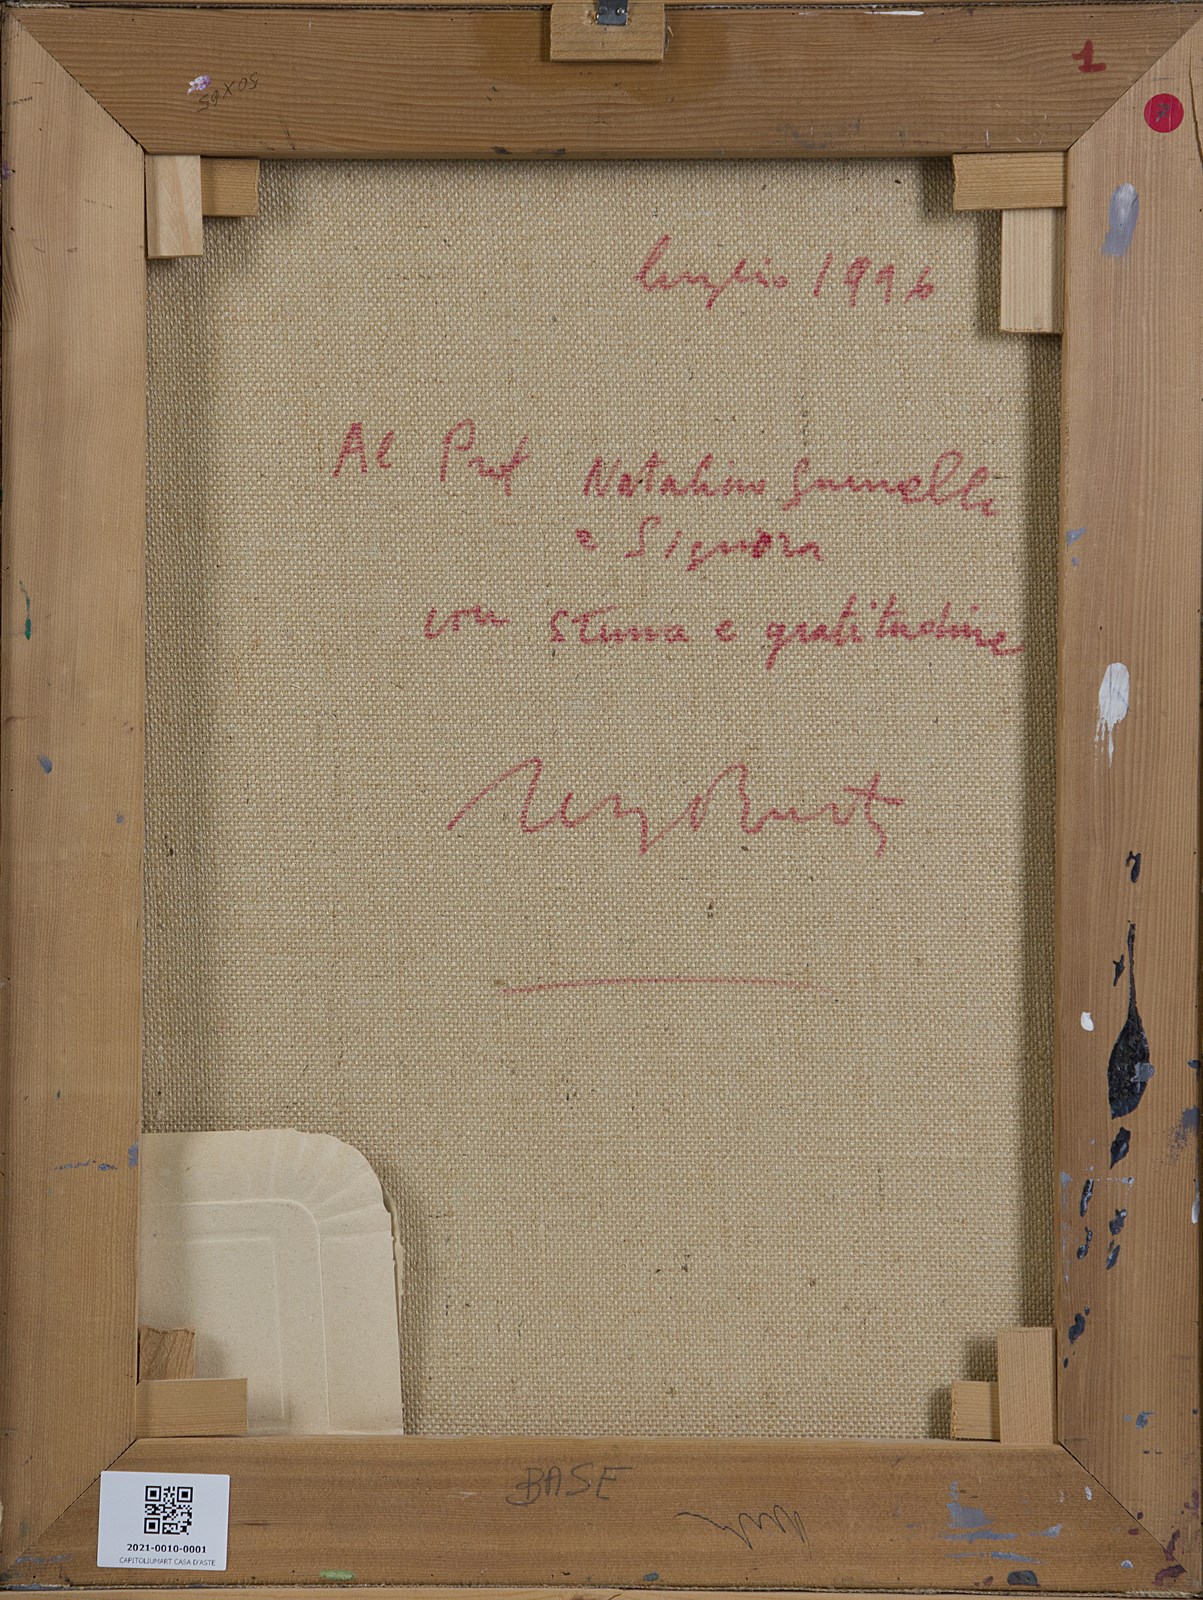 50x65
1
luglio 1996
Al Prof Natalino
e Signora
con stima e gratitudine
BASE
2021-0010-0001
CAPITOLIUMART CASA D'ASTE